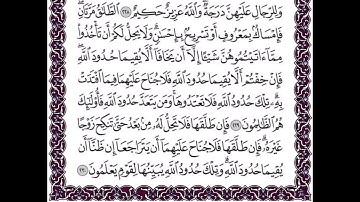 وَلِلرِّجَالِ عَلَيْهِنَّ دَرَجَةٌ وَاللَّهُ عَزِيزٌ حَكِيمٌ ٢٢٨ الطَّلَاقُ مَرَّتَانِ
فَإِمْسَاكٌ بِمَعْرُوفٍ أَوْ تَسْرِيحٌ بِإِحْسَانٍ وَلَا يَحِلُّ لَكُمْ أَنْ تَأْخُذُوا
مِمَّا آتَيْتُمُوهُنَّ شَيْئًا إِلَّا أَنْ يَخَافَا أَلَّا يُقِيمَا حُدُودَ اللَّهِ
فَإِنْ خِفْتُمْ أَلَّا يُقِيمَا حُدُودَ اللَّهِ فَلَا جُنَاحَ عَلَيْهِمَا فِيمَا افْتَدَتْ
بِهِ تِلْكَ حُدُودُ اللَّهِ فَلَا تَعْتَدُوهَا وَمَنْ يَتَعَدَّ حُدُودَ اللَّهِ فَأُولَئِكَ
هُمُ الظَّالِمُونَ ٢٢٩ فَإِنْ طَلَّقَهَا فَلَا تَحِلُّ لَهُ مِنْ بَعْدُ حَتَّى تَنْكِحَ زَوْجًا
غَيْرَهُ فَإِنْ طَلَّقَهَا فَلَا جُنَاحَ عَلَيْهِمَا أَنْ يَتَرَاجَعَا إِنْ ظَنَّا أَنْ
يُقِيمَا حُدُودَ اللَّهِ وَتِلْكَ حُدُودُ اللَّهِ يُبَيِّنُهَا لِقَوْمٍ يَعْلَمُونَ ٢٣٠